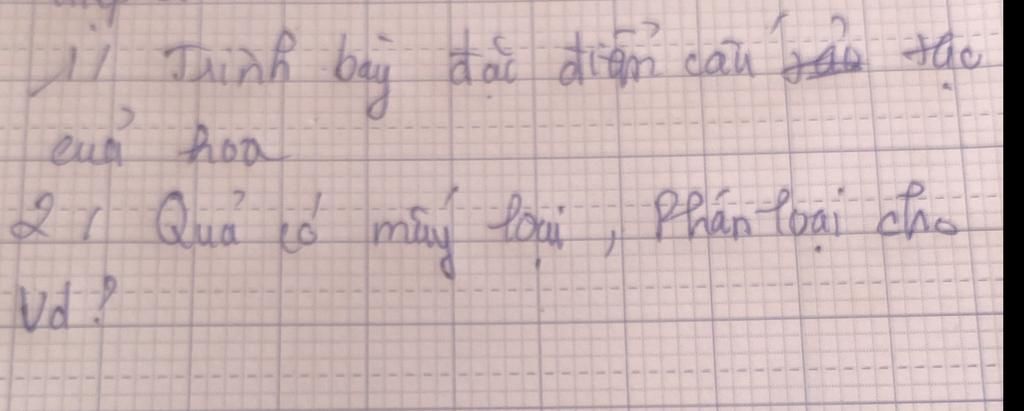 1/ Trình bày đặc điểm cấu tạc
củả hoa
2/ Quả có mấy loại, Phân loại cho
Vd?